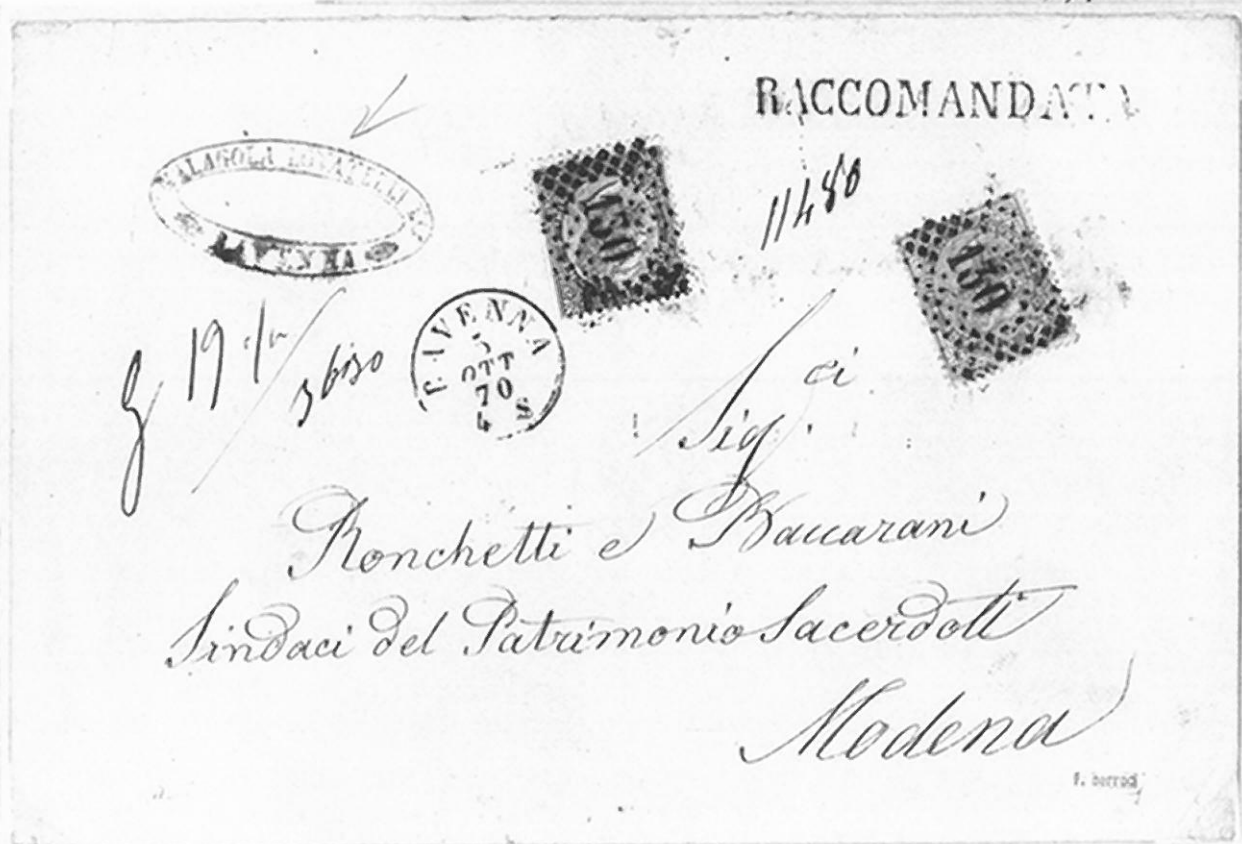 RACCOMANDATA
MALAGOLA
RAVENNA
130
11480
130
RAVENNA
5
OTT
70
4 S
19
Sig ci
Ronchetti e Baccarani
Sindaci del Patrimonio Sacerdoti
Modena